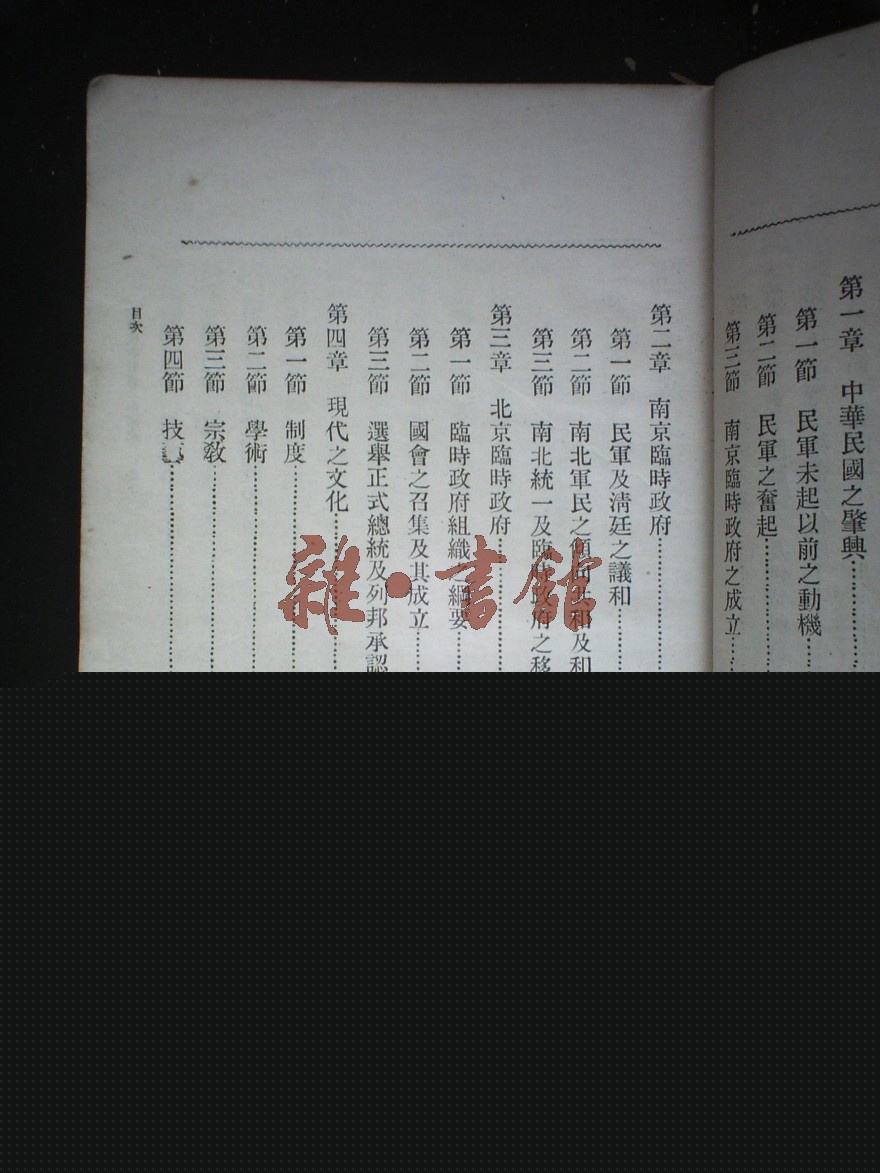 第一章　中華民國之肇興
第一節　民軍未起以前之動機
第二節　民軍之奮起
第三節　南京臨時政府之成立
第二章　南京臨時政府
第一節　民軍及清廷之議和
第二節　南北軍民之傾向共和及和
第三節　南北統一及臨時政府之移
第三章　北京臨時政府
第一節　臨時政府組織之綱要
第二節　國會之召集及其成立
第三節　選舉正式總統及列邦承認
第四章　現代之文化
第一節　制度
第二節　學術
第三節　宗教
第四節　技
目次
雜·書館